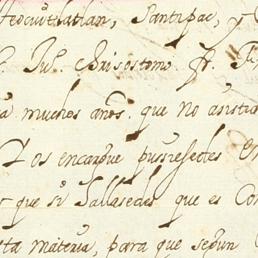 Teocuitlatlan, Santipac, y
Ju°. Chrisostomo fr.
muchos años. que no asistia
Os encargue pussiessedes en
que si hallasedes que es Con
ta materia, para que segun